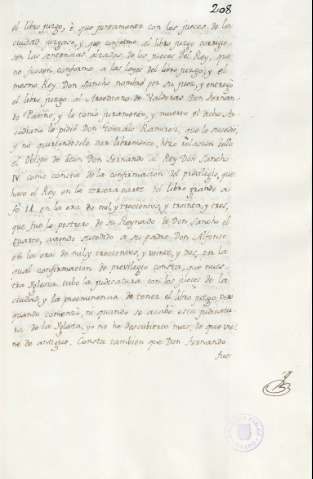 208
el libro juzgo, è que juntamente con los jueces de la
ciudad juzgase, y que conforme al libro juzgo corrijan
con las sentencias alzadas de los jueces del Rey, que
no fuesen conforme a las leyes del libro juzgo, y el
mesmo Rey Don Sancho nombró por su juez, y entregó
el libro juzgo al Arcediano de Valderas Don Fernan-
do Patiño, y le tomó juramento, y muerto el dicho Ar-
cediano lo pidió Don Gonzalo Ramirez, que le sucedió,
y no queriendoselo dar libremente, hizo relacion dello
el Obispo de Leon Don Fernando al Rey Don Sancho
IV como consta de la confirmacion del privilegio, que
hace el Rey en la tercera parte del libro grande a
fo 18. en la era de mil, y trescientos, y treinta, y tres,
que fue lo postrero de su Reynado de Don Sancho el
Quarto, aviendo sucedido a su padre Don Alfonso
en las eras de mil, y trescientos, y veinte, y dos, por la
qual confirmacion de previlegio consta, que nues-
tra Yglesia tubo la judicatura con los jueces de la
ciudad, y la preeminencia de tener el libro juzgo, pero
quando comenzó, ni quando se acabó esta judicatu-
ra de la Yglesia, yo no he descubierto mas, de que vie-
ne de antiguo. Consta tambien que Don Fernando